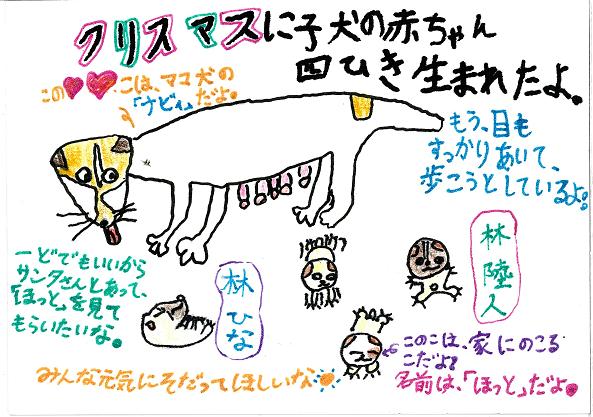 クリスマスに子犬の赤ちゃん
四ひき生まれたよ。
この❤❤こは、ママ犬の
「ナビィ」だよ。
もう、目も
すっかりあいて、
歩こうとしているよ。
一どでもいいから
サンタさんとあって、
「ほっと」を見て
もらいたいな。
林ひな
林陸人
このこは、家にのこる
こだよ!
名前は、「ほっと」だよ。
みんな元気にそだってほしいな